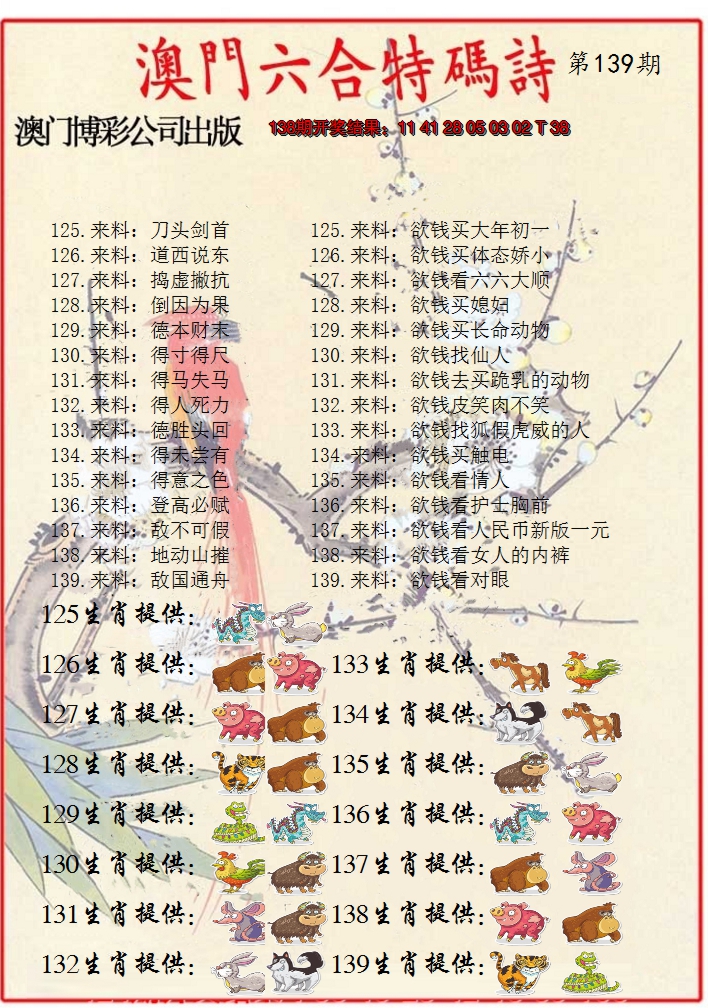 澳門六合特碼詩 第139期
澳门博彩公司出版 138期开奖结果：11 41 28 05 03 02 T 36
125.来料：刀头剑首 125.来料：欲钱买大年初一
126.来料：道西说东 126.来料：欲钱买体态娇小
127.来料：捣虚撇抗 127.来料：欲钱看六六大顺
128.来料：倒因为果 128.来料：欲钱买媳妇
129.来料：德本财末 129.来料：欲钱买长命动物
130.来料：得寸得尺 130.来料：欲钱找仙人
131.来料：得马失马 131.来料：欲钱去买跪乳的动物
132.来料：得人死力 132.来料：欲钱皮笑肉不笑
133.来料：德胜头回 133.来料：欲钱找狐假虎威的人
134.来料：得未尝有 134.来料：欲钱买触电
135.来料：得意之色 135.来料：欲钱看情人
136.来料：登高必赋 136.来料：欲钱看护士胸前
137.来料：敌不可假 137.来料：欲钱看人民币新版一元
138.来料：地动山摧 138.来料：欲钱看女人的内裤
139.来料：敌国通舟 139.来料：欲钱看对眼
125生肖提供：
126生肖提供： 133生肖提供：
127生肖提供： 134生肖提供：
128生肖提供： 135生肖提供：
129生肖提供： 136生肖提供：
130生肖提供： 137生肖提供：
131生肖提供： 138生肖提供：
132生肖提供： 139生肖提供：